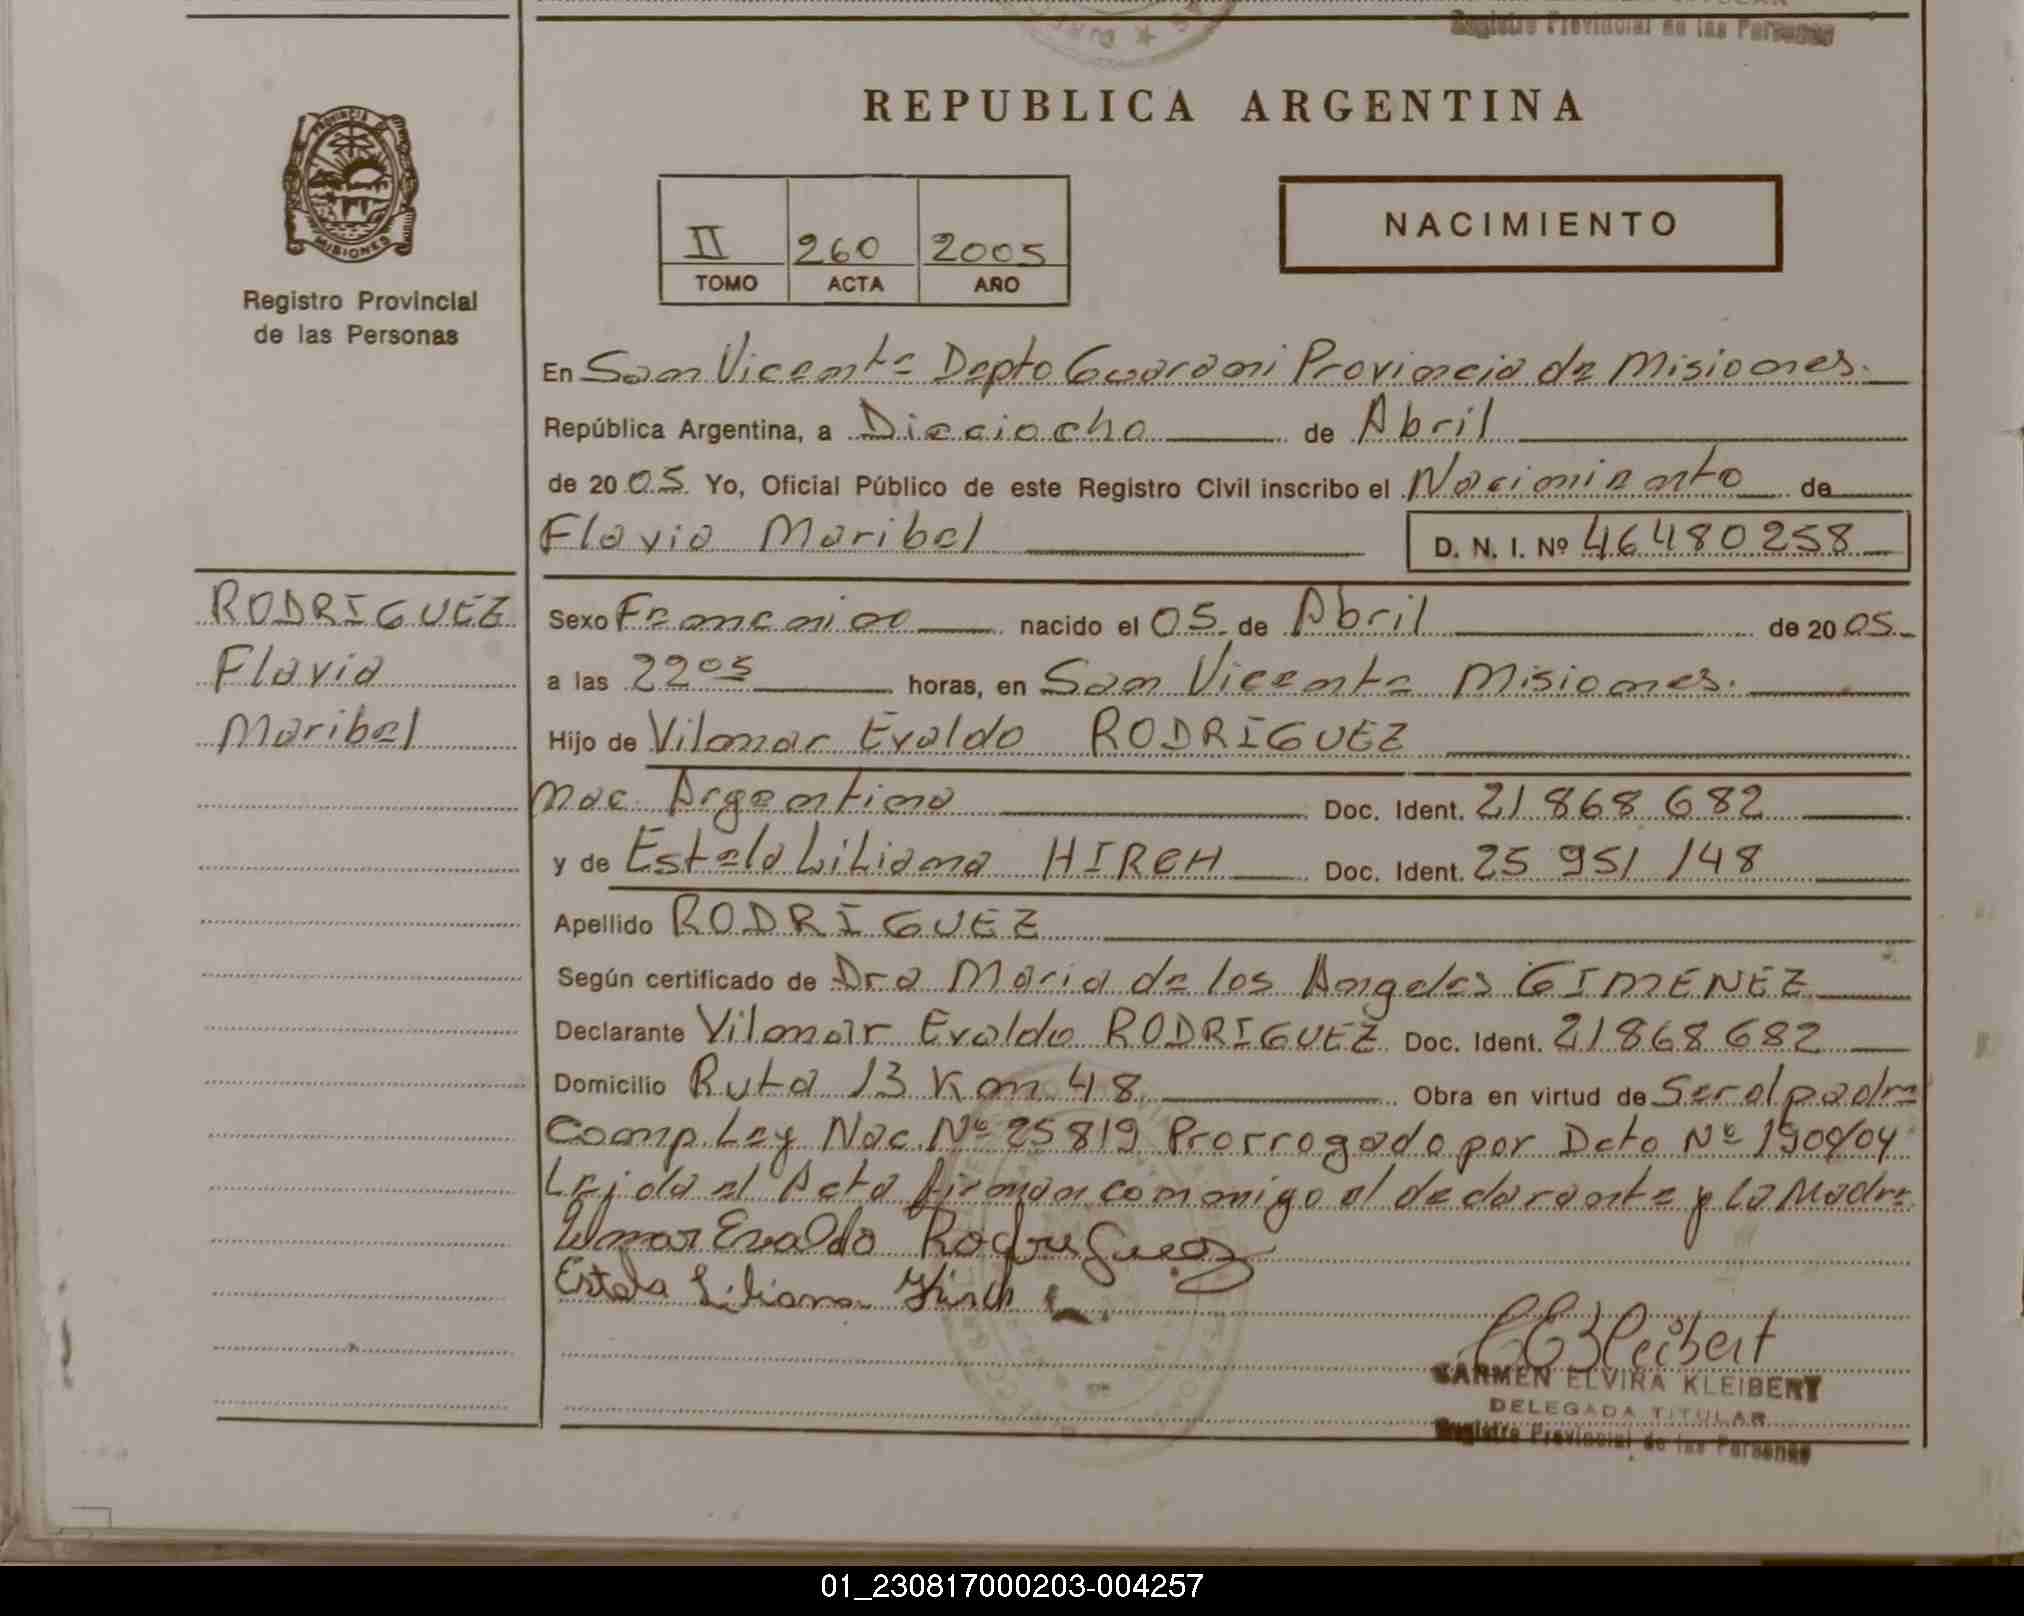 Registro Provincial de las Personas
REPUBLICA ARGENTINA
PROVINCIA DE
MISIONES
Registro Provincial
de las Personas
II 260 2005
TOMO ACTA AÑO
NACIMIENTO
En San Vicente Depto Guarani Provincia de Misiones.
República Argentina, a Dieciocho de Abril
de 2005 Yo, Oficial Público de este Registro Civil inscribo el Nacimiento de
Flavia Maribel D. N. I. Nº 46480258
RODRIGUEZ
Flavia
Maribel
Sexo Femenino nacido el 05 de Abril de 2005
a las 22 05 horas, en San Vicente Misiones.
Hijo de Vilmar Evaldo RODRIGUEZ
Nac. Argentina Doc. Ident. 21 868 682
y de Estela Liliana HIRCH Doc. Ident. 25 951 148
Apellido RODRIGUEZ
Según certificado de Dra Maria de los Angeles GIMENEZ
Declarante Vilmar Evaldo RODRIGUEZ Doc. Ident. 21868682
Domicilio Ruta 13 Km 48 Obra en virtud de Ser el padre
Comp. Ley Nac. Nº 25819 Prorrogado por Dcto Nº 190%4
Leida el Acta firman conmigo el declarante y la Madre
Evaldo Rodriguez
Estela Liliana Hirch
CEKleibert
CARMEN ELVIRA KLEIBERT
DELEGADA TITULAR
Registro Provincial de las Personas
01_230817000203-004257